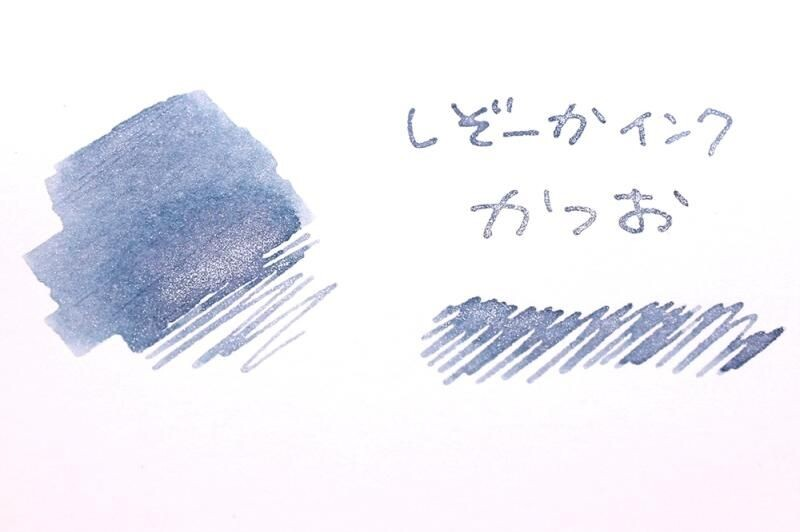 しぞーかインク
かつお